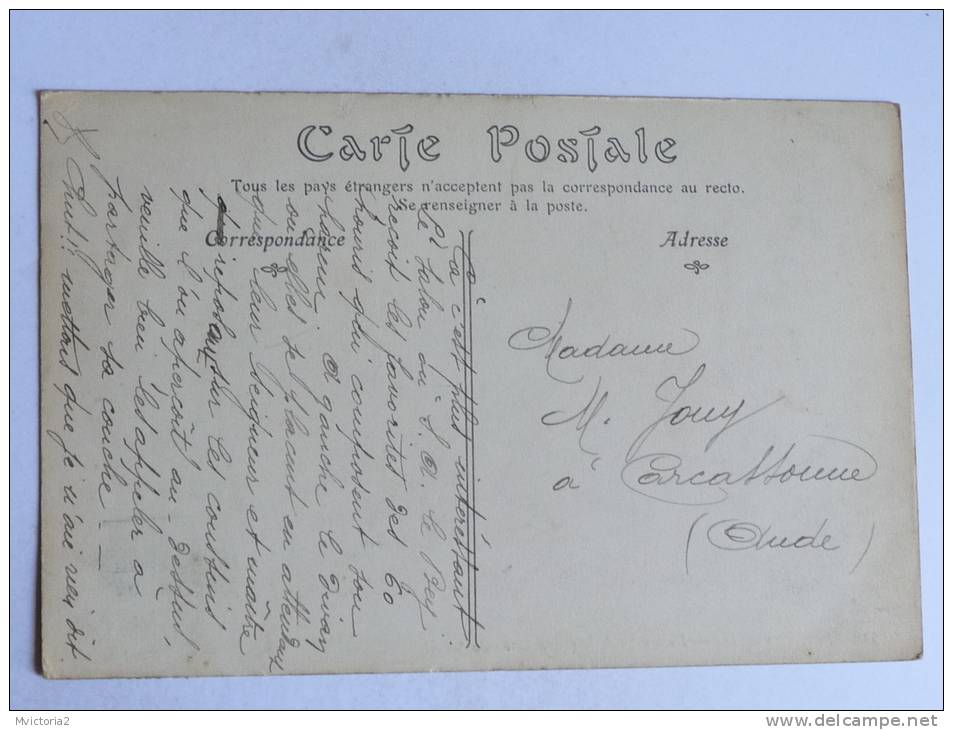 Carte Postale
Tous les pays étrangers n'acceptent pas la correspondance au recto.
Se renseigner à la poste.
Correspondance
Adresse
Ça c'est plus intéressant
le salon où S. A. le Bey
reçoit les favorites des 60
houris qui composent son
harem à gauche le divan
où elles se placent en attendant
que leur seigneur et maître
reposant sur les coussins
que l'on aperçoit au-dessus,
veuille bien les appeler à
partager sa couche —
Chut!! mettons que je n'aie rien dit.
Madame
M. Jouy
à Carcassonne
(Aude)
Mvictoria2
www.delcampe.net